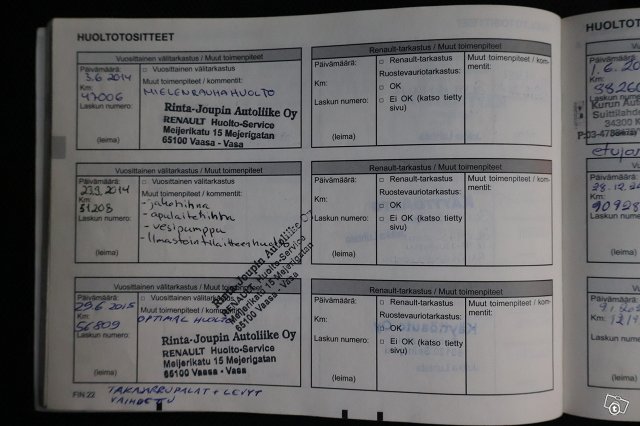 HUOLTOTOSITTEET
Vuosittainen välitarkastus / Muut toimenpiteet
Päivämäärä:
3.6 2014
Km:
47006
Laskun numero:
(leima)
□ Vuosittainen välitarkastus
Muut toimenpiteet / kommentit:
MIELENRAUHAHUOLTO
Rinta-Joupin Autoliike Oy
RENAULT Huolto-Service
Meijerikatu 15 Mejerigatan
65100 Vaasa - Vasa
Renault-tarkastus / Muut toimenpiteet
Päivämäärä:
Km:
Laskun numero:
(leima)
□ Renault-tarkastus
Ruostevauriotarkastus:
□ OK
□ Ei OK (katso tietty
sivu)
Muut toimenpiteet / kom-
mentit:
Vuosittainen välitarkastus / Muut toimenpiteet
Päivämäärä:
23.9 2014
Km:
51208
Laskun numero:
(leima)
□ Vuosittainen välitarkastus
Muut toimenpiteet / kommentit:
- jakohihna
- apulaitehihna
- vesipumppu
- Ilmastointilaitteen huolto
Rinta-Joupin Autoliike Oy
RENAULT Huolto-Service
Meijerikatu 15 Mejerigatan
65100 Vaasa - Vasa
Renault-tarkastus / Muut toimenpiteet
Päivämäärä:
Km:
Laskun numero:
(leima)
□ Renault-tarkastus
Ruostevauriotarkastus:
□ OK
□ Ei OK (katso tietty
sivu)
Muut toimenpiteet / kom-
mentit:
Vuosittainen välitarkastus / Muut toimenpiteet
Päivämäärä:
29.6 2015
Km:
56809
Laskun numero:
(leima)
□ Vuosittainen välitarkastus
Muut toimenpiteet / kommentit:
OPTIMAL HUOLTO
Rinta-Joupin Autoliike Oy
RENAULT Huolto-Service
Meijerikatu 15 Mejerigatan
65100 Vaasa - Vasa
Renault-tarkastus / Muut toimenpiteet
Päivämäärä:
Km:
Laskun numero:
(leima)
□ Renault-tarkastus
Ruostevauriotarkastus:
□ OK
□ Ei OK (katso tietty
sivu)
Muut toimenpiteet / kom-
mentit:
FIN 22
TAKAJARRUPALAT + LEVYT
VAIHDETTU
HUOLTOT
Päivämäärä:
1.6.20
Km:
88260
Kurun Aut
Suittilahde
34300 K
P:03-4788
Päivämäärä:
28.12.20
Km:
90928
Laskun numero:
(leima)
Päivämäärä:
Km:
Laskun numero:
(leima)